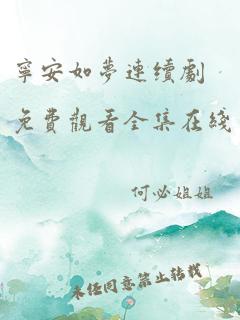 寧安如夢連續劇
免費觀看全集在綫
何必姐姐
未经同意禁止转载